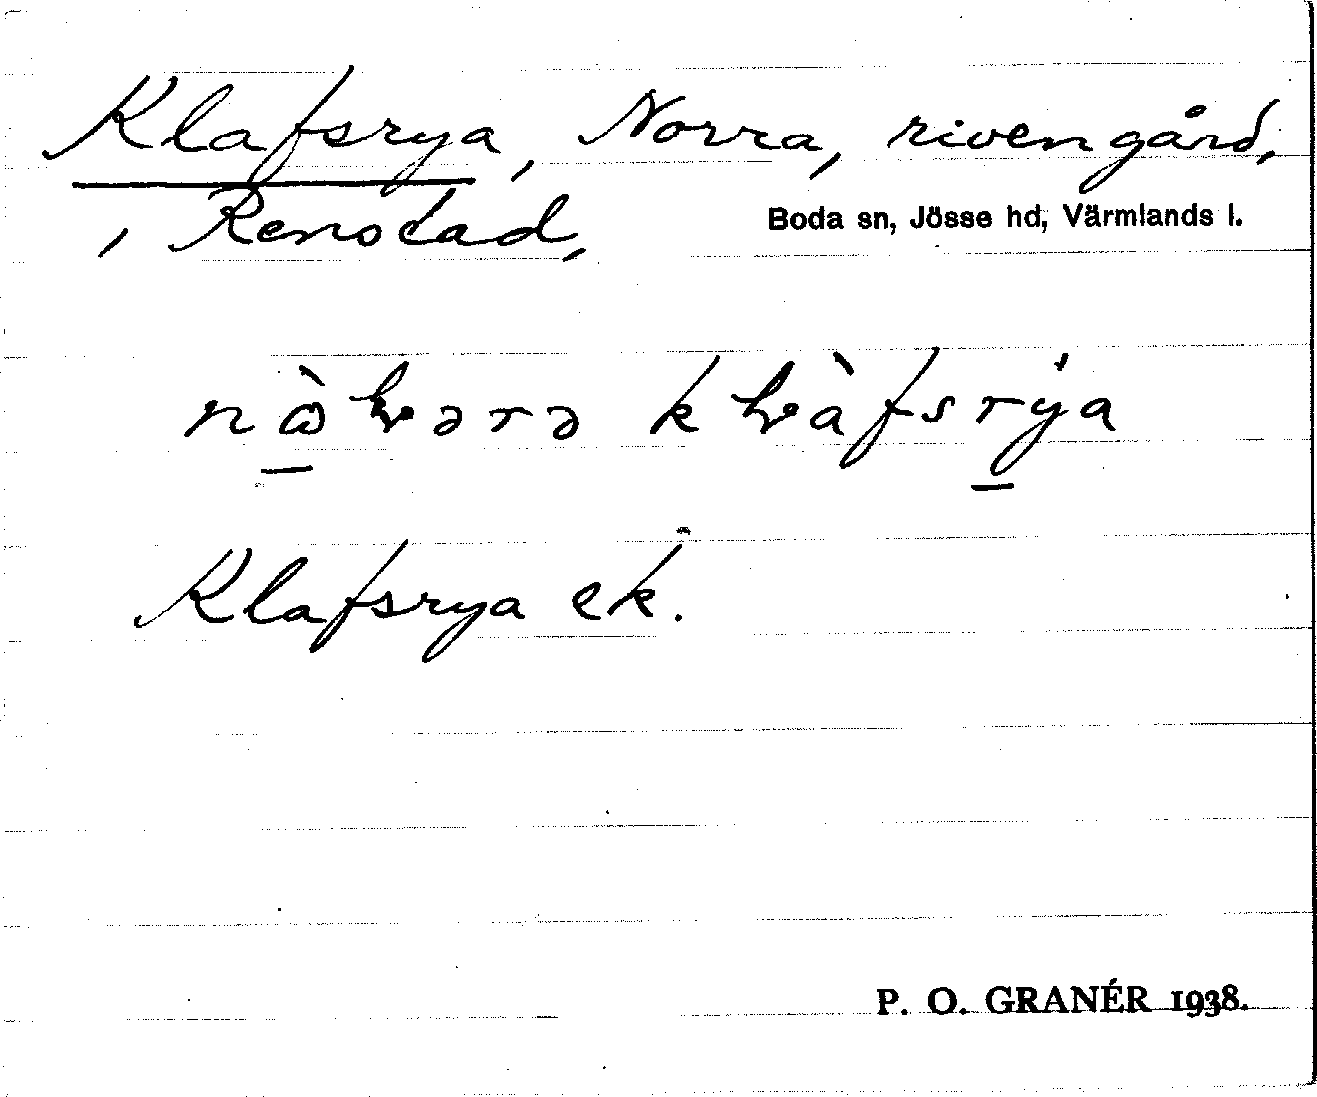 Klafsrya, Norra, riven gård,
, Renstad,
Boda sn, Jösse hd, Värmlands l.
Klafsrya ek.
P. O. GRANÉR 1938.